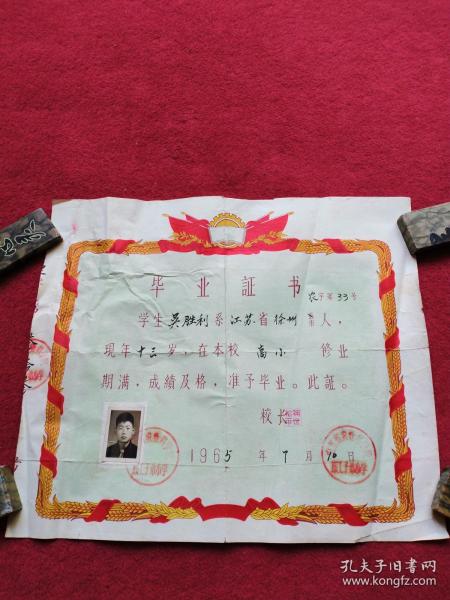 毕业証书
农字第33号
学生吴胜利系江苏省徐州市县人，
现年十三岁，在本校高小修业
期满，成績及格，准予毕业。此証。
校长
1965年7月10日
孔夫子旧书网
www.kongfz.com